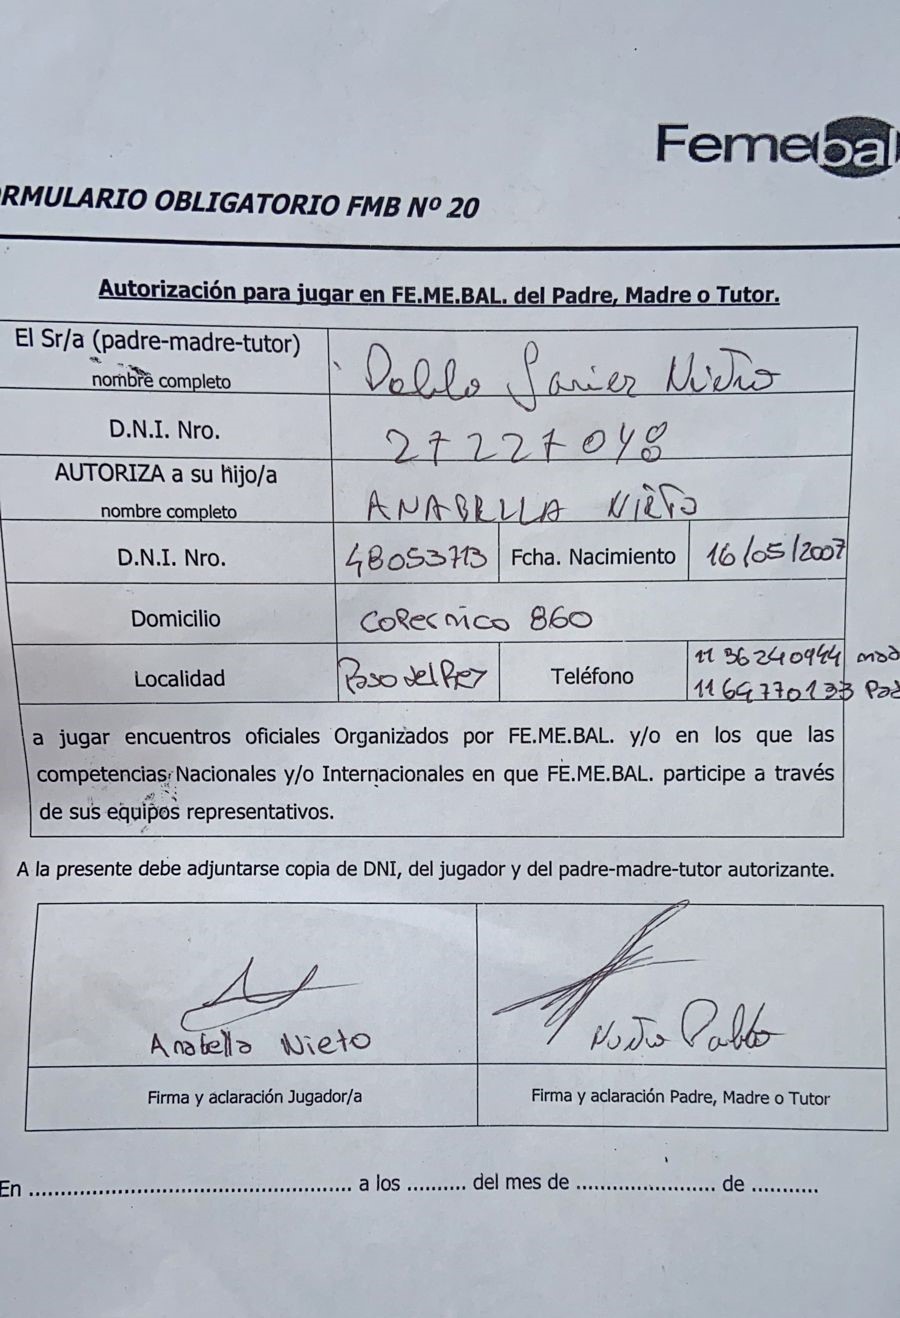 Femebal
ORMULARIO OBLIGATORIO FMB Nº 20
Autorización para jugar en FE.ME.BAL. del Padre, Madre o Tutor.
El Sr/a (padre-madre-tutor)
nombre completo
Pablo Javier Nieto
D.N.I. Nro.
27227048
AUTORIZA a su hijo/a
nombre completo
ANABELLA NIETO
D.N.I. Nro.
48053713
Fcha. Nacimiento
16/05/2007
Domicilio
Copernico 860
Localidad
Paso del Rey
Teléfono
11 36240944 mad
11 64770133 Pad
a jugar encuentros oficiales Organizados por FE.ME.BAL. y/o en los que las
competencias Nacionales y/o Internacionales en que FE.ME.BAL. participe a través
de sus equipos representativos.
A la presente debe adjuntarse copia de DNI, del jugador y del padre-madre-tutor autorizante.
Anabella Nieto
Nieto Pablo
Firma y aclaración Jugador/a
Firma y aclaración Padre, Madre o Tutor
En .................................................. a los .......... del mes de ...................... de ...........